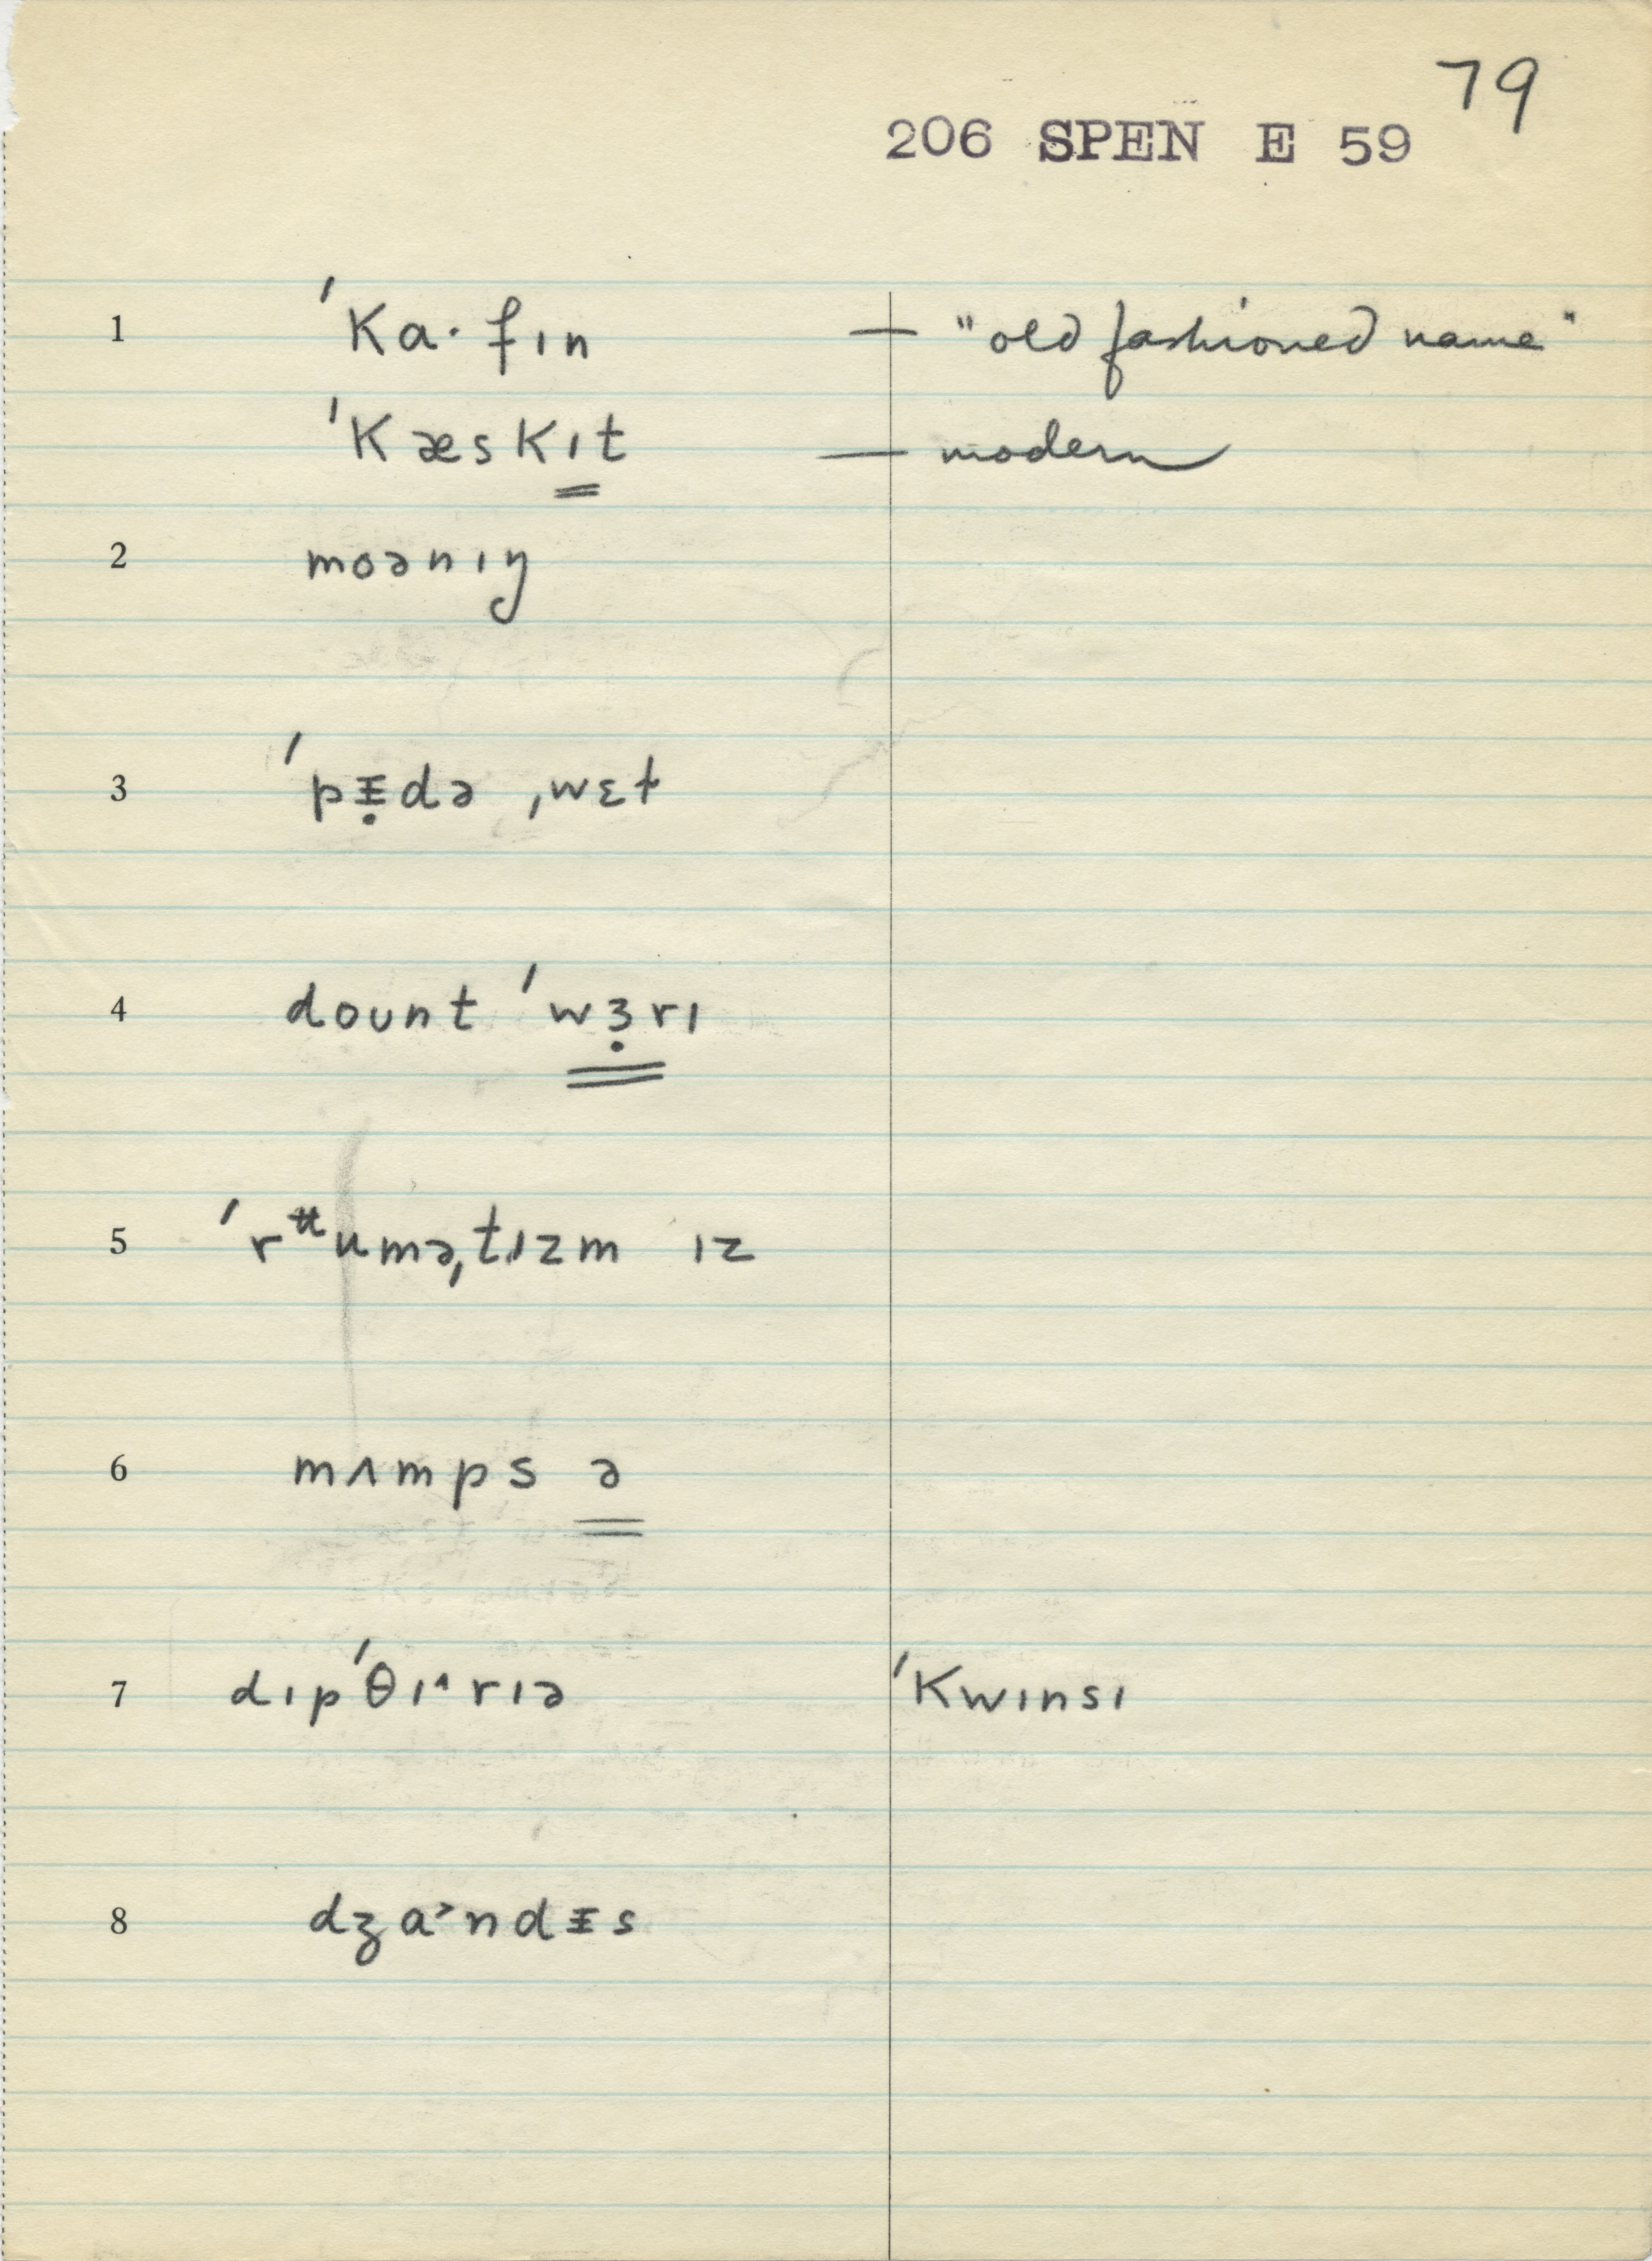 79
206 SPEN E 59
1 ˈka· fɪn — "old fashioned name"
ˈkæskɪt — modern
2 moənɪŋ
3 ˈpᵻ̣də ˌwɛt
4 dount ˈwɜ̣rɪ
5 ˈrᵾuməˌtɪzm ɪz
6 mʌmps ə
7 dɪpˈθɪ˄rɪə ˈkwɪnsɪ
8 dʒa˃ndᵻs